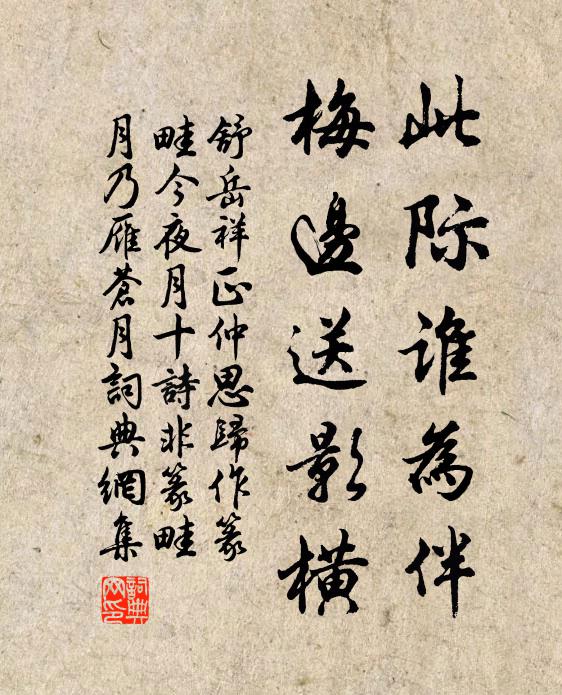 此际誰為伴
梅邊送影橫
舒岳祥正仲思歸作篆
畦今夜月十詩非篆畦
月乃雁蒼月詞典網集
詞典網印